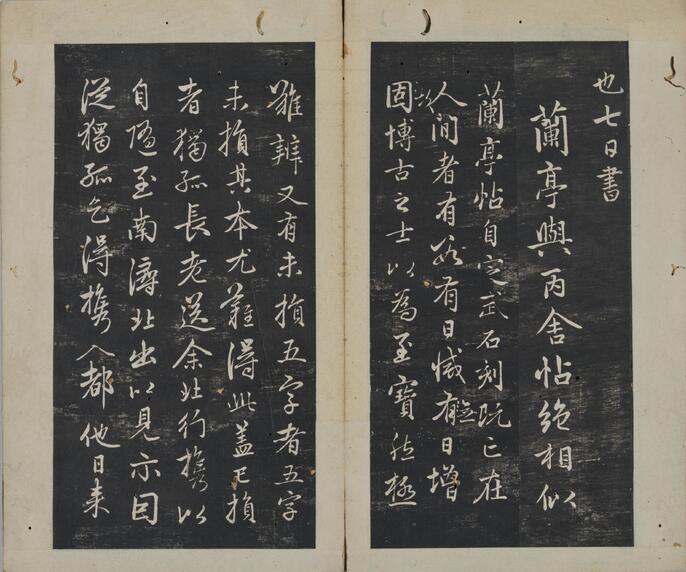 也七日書
蘭亭與丙舍帖絶相似
蘭亭帖自定武石刻既亡在
人間者有數有日減有無日增
固博古之士以為至寶然極
難辨又有未損五字者五字
未損其本尤難得此盖已損
者獨孤長老送余北行攜以
自隨至南潯北出以見示因
從獨孤乞得攜入都他日来